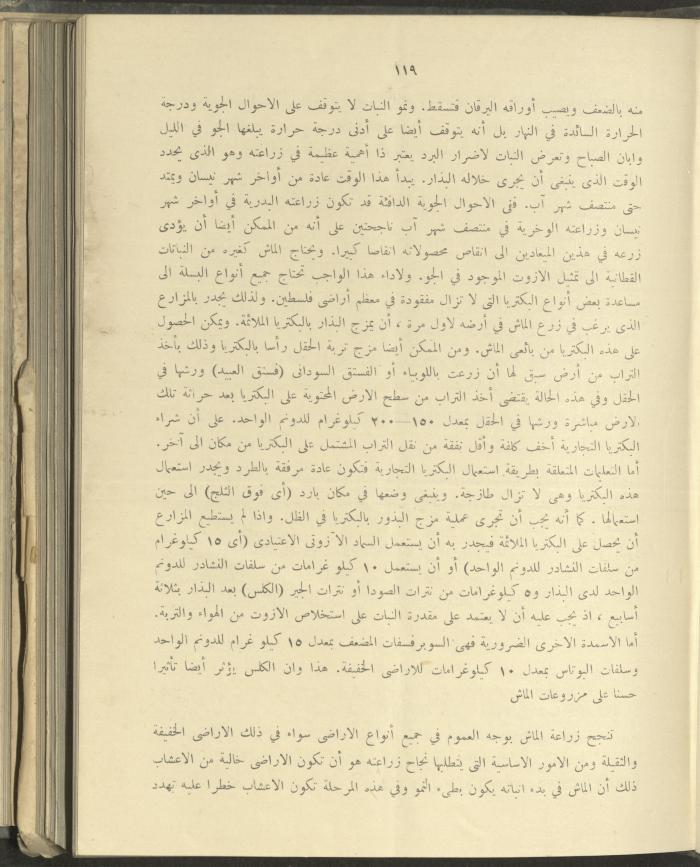 ١١٩
منه بالضعف ويصيب أوراقه اليرقان فتسقط. ونمو النبات لا يتوقف على الاحوال الجوية ودرجة
الحرارة السائدة في النهار بل أنه يتوقف أيضا على أدنى درجة حرارة يبلغها الجو في الليل
وابان الصباح وتعرض النبات لاضرار البرد يعتبر ذا أهمية عظيمة في زراعته وهو الذى يحدد
الوقت الذى ينبغى أن يجرى خلاله البذار. يبدأ هذا الوقت عادة من أواخر شهر نيسان ويمتد
حتى منتصف شهر آب. ففى الاحوال الجوية الدافئة قد تكون زراعته البدرية في أواخر شهر
نيسان وزراعته الوخرية في منتصف شهر آب ناجحتين على أنه من الممكن أيضا أن يؤدى
زرعه في هذين الميعادين الى انقاص محصولاته انقاصا كبيرا. ويحتاج الماش كغيره من النباتات
القطانية الى تمثيل الازوت الموجود في الجو. ولاداء هذا الواجب تحتاج جميع أنواع البسلة الى
مساعدة بعض أنواع البكتريا التى لا تزال مفقودة في معظم أراضى فلسطين. ولذلك يجدر بالمزارع
الذى يرغب في زرع الماش في أرضه لاول مرة ، أن يمزج البذار بالبكتريا الملائمة. ويمكن الحصول
على هذه البكتريا من بائعى الماش. ومن الممكن أيضا مزج تربة الحقل رأسا بالبكتريا وذلك بأخذ
التراب من أرض سبق لها أن زرعت باللوبياء أو الفستق السودانى (فستق العبيد) ورشها في
الحقل وفي هذه الحالة يقتضى أخذ التراب من سطح الارض المحتوية على البكتريا بعد حراثة تلك
الارض مباشرة ورشها في الحقل بمعدل ١٥٠—٢٠٠ كيلوغرام للدونم الواحد. على أن شراء
البكتريا التجارية أخف كلفة وأقل نفقة من نقل التراب المشتمل على البكتريا من مكان الى آخر.
أما التعليمات المتعلقة بطريقة استعمال البكتريا التجارية فتكون عادة مرفقة بالطرد ويجدر استعمال
هذه البكتريا وهى لا تزال طازجة. وينبغى وضعها في مكان بارد (أى فوق الثلج) الى حين
استعمالها . كما أنه يجب أن تجرى عملية مزج البذور بالبكتريا في الظل. واذا لم يستطيع المزارع
أن يحصل على البكتريا الملائمة فيجدر به أن يستعمل السماد الآزوتى الاعتيادى (أى ١٥ كيلوغرام
من سلفات النشادر للدونم الواحد) أو أن يستعمل ١٠ كيلو غرامات من سلفات النشادر للدونم
الواحد لدى البذار و٥ كيلوغرامات من نترات الصودا أو نترات الجير (الكلس) بعد البذار بثلاثة
أسابيع ، اذ يجب عليه أن لا يعتمد على مقدرة النبات على استخلاص الازوت من الهواء والتربة.
أما الاسمدة الاخرى الضرورية فهى السوبرفسفات المضعف بمعدل ١٥ كيلو غرام للدونم الواحد
وسلفات البوتاس بمعدل ١٠ كيلوغرامات للاراضى الخفيفة. هذا وان الكلس يؤثر أيضا تأثيرا
حسنا على مزروعات الماش
تنجح زراعة الماش بوجه العموم في جميع أنواع الاراضى سواء في ذلك الاراضى الخفيفة
والثقيلة ومن الامور الاساسية التى يتطلبها نجاح زراعته هو أن تكون الاراضى خالية من الاعشاب
ذلك أن الماش في بدء انباته يكون بطىء النمو وفي هذه المرحلة تكون الاعشاب خطرا عليه تهدد